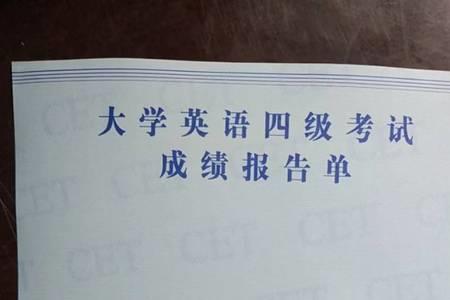 大学英语四级考试
成绩报告单
CET
CET
CET
CET
CET
CET